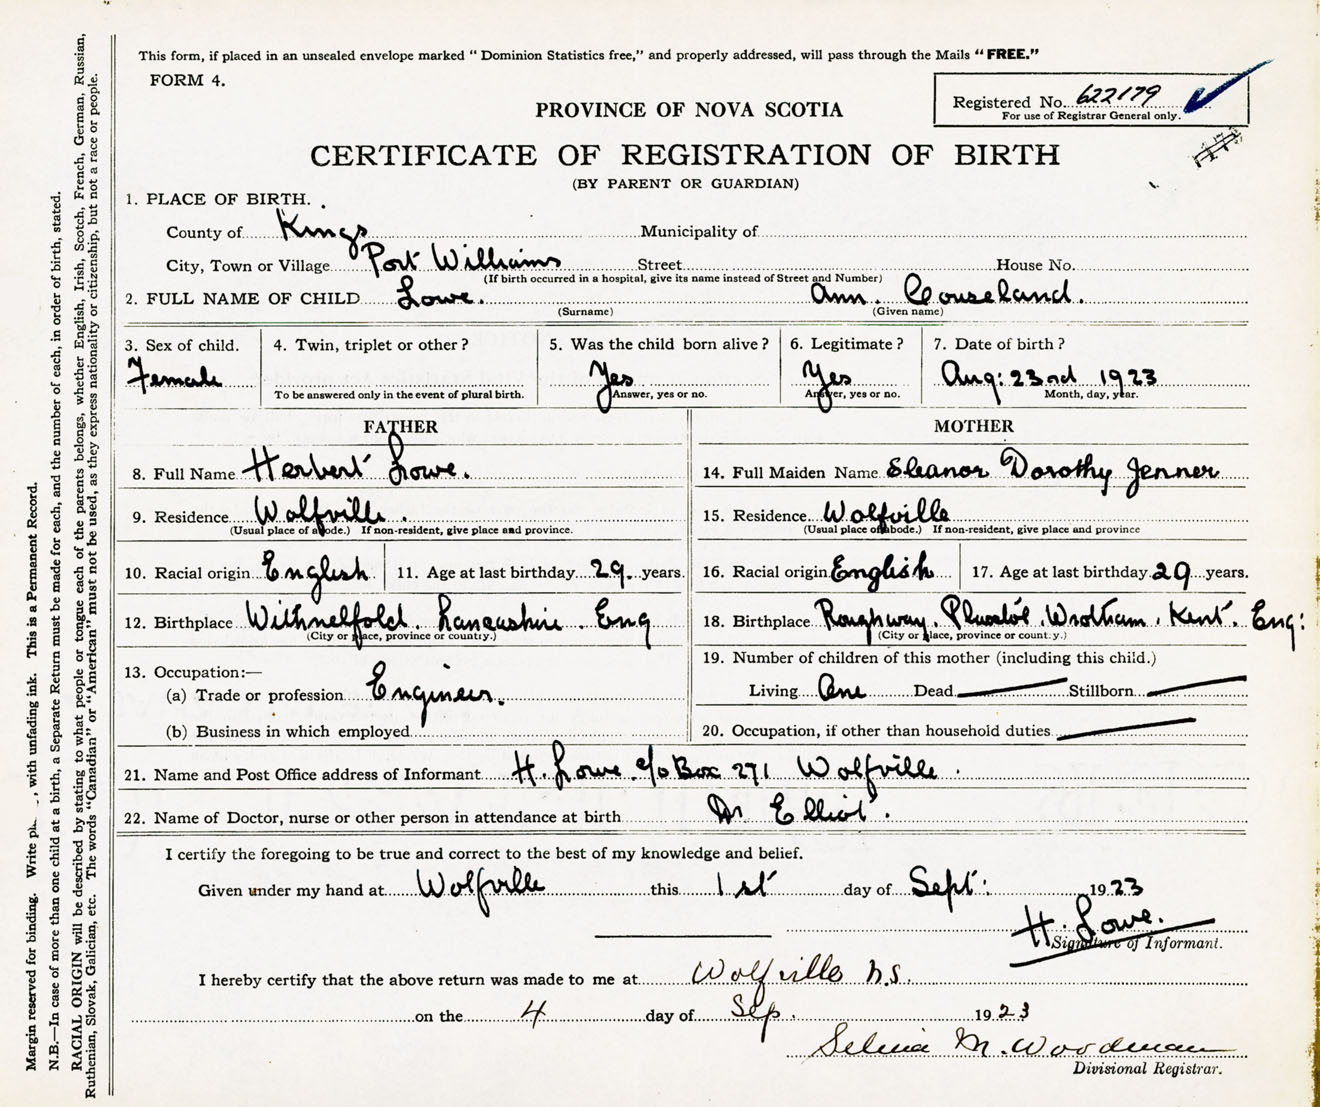 This form, if placed in an unsealed envelope marked " Dominion Statistics free," and properly addressed, will pass through the Mails "FREE."
FORM 4.
Registered No. 622179
For use of Registrar General only.
PROVINCE OF NOVA SCOTIA
CERTIFICATE OF REGISTRATION OF BIRTH
(BY PARENT OR GUARDIAN)
1. PLACE OF BIRTH.
County of Kings Municipality of
City, Town or Village Port Williams Street House No.
(If birth occurred in a hospital, give its name instead of Street and Number)
2. FULL NAME OF CHILD Lowe. Ann. Couseland.
(Surname) (Given name)
3. Sex of child. 4. Twin, triplet or other? 5. Was the child born alive? 6. Legitimate? 7. Date of birth?
Female Yes Yes Aug: 23rd 1923
To be answered only in the event of plural birth. Answer, yes or no. Answer, yes or no. Month, day, year.
FATHER
8. Full Name Herbert Lowe.
9. Residence Wolfville.
(Usual place of abode.) If non-resident, give place and province.
10. Racial origin English 11. Age at last birthday 29. years.
12. Birthplace Withnelfold. Lancashire. Eng
(City or place, province or country.)
13. Occupation:—
(a) Trade or profession Engineer.
(b) Business in which employed
MOTHER
14. Full Maiden Name Eleanor Dorothy Jenner
15. Residence Wolfville
(Usual place of abode.) If non-resident, give place and province
16. Racial origin English 17. Age at last birthday 29 years.
18. Birthplace Roughway. Wrotham. Kent. Eng:
(City or place, province or country.)
19. Number of children of this mother (including this child.)
Living One Dead Stillborn
20. Occupation, if other than household duties
21. Name and Post Office address of Informant H. Lowe. c/o Box 271 Wolfville.
22. Name of Doctor, nurse or other person in attendance at birth Dr Elliot.
I certify the foregoing to be true and correct to the best of my knowledge and belief.
Given under my hand at Wolfville this 1st day of Sept: 1923
H. Lowe.
Signature of Informant.
I hereby certify that the above return was made to me at Wolfville N.S.
on the 4 day of Sep. 1923
Selina M. Woodman
Divisional Registrar.
Margin reserved for binding. Write with unfading ink. This is a Permanent Record.
N.B.—In case of more than one child at a birth, a Separate Return must be made for each, and the number of each, in order of birth, stated.
RACIAL ORIGIN will be described by stating to what people or tongue each of the parents belongs, whether English, Irish, Scotch, French, German, Russian,
Ruthenian, Slovak, Galician, etc. The words "Canadian" or "American" must not be used, as they express nationality or citizenship, but not a race or people.